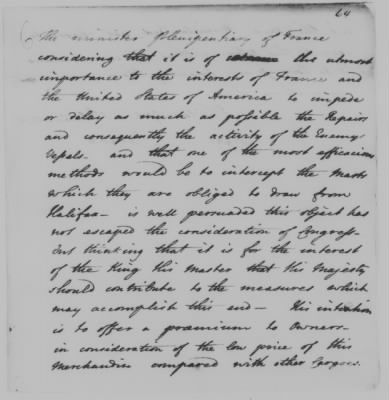 64
The minister plenipentiary of France
considering that it is of the utmost
importance to the interests of France and
the United States of America to impede
or delay as much as possible the Repairs
and consequently the activity of the Enemys
Vessels - and that one of the most efficacious
methods would be to intercept the Masts
which they are obliged to draw from
Halifax - is well persuaded this object has
not escaped the consideration of Congress -
but thinking that it is for the interest
of the King His Master that His Majesty
should contribute to the measures which
may accomplish this end - His intention
is to offer a præmium to Owners -
in consideration of the low price of this
Merchandise compared with other Cargoes.